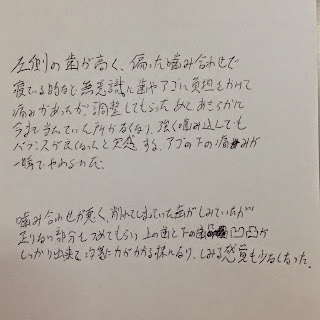 左側の歯が高く、偏った噛み合わせで
寝ている時など無意識に歯やアゴに負担をかけて
痛みがあったが、調整してもらったあと、あきらかに
今まで当たっていた所がなくなり、強く噛み返しても
バランスが良くなったと実感する。アゴの下の痛みが
一瞬でやわらかだ。
噛み合わせが悪く、削れてしまっていた歯がしみていたが
足りない部分もつめてもらい上の歯と下の歯の凹凸が
しっかり出来て均等に力がかかる様になり、しみる感覚も少なくなった。